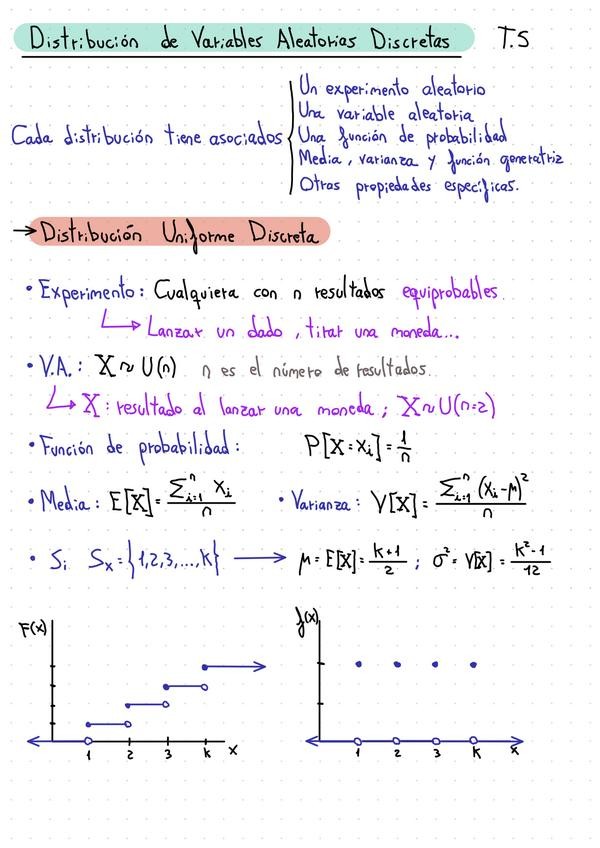 Distribución de Variables Aleatorias Discretas T.5
Un experimento aleatorio
Una variable aleatoria
Cada distribución tiene asociados Una función de probabilidad
Media, varianza y función generatriz
Otras propiedades específicas.
→ Distribución Uniforme Discreta
• Experimento: Cualquiera con n resultados equiprobables.
Lanzar un dado, tirar una moneda...
• V.A.: X ~ U(n) n es el número de resultados.
X: resultado al lanzar una moneda; X ~ U(n=2)
• Función de probabilidad: P[X=xᵢ] = 1/n
• Media: E[X] = ∑ᵢ₌₁ⁿ xᵢ / n • Varianza: V[X] = ∑ᵢ₌₁ⁿ (xᵢ-μ)² / n
• Si Sₓ = {1,2,3,...,k} → μ = E[X] = k+1 / 2 ; σ² = V[X] = k²-1 / 12
F(x) f(x)
1 2 3 k x 1 2 3 k x